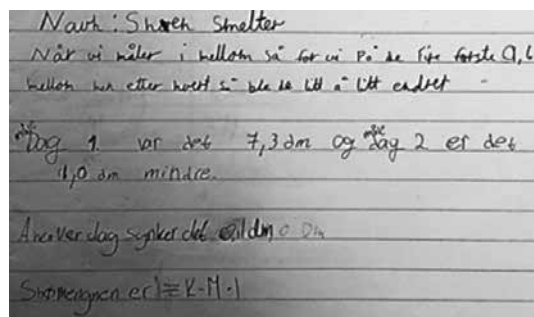 Navn: Snøen Smelter
Når vi måler i mellom så for vi På de Fire første 0,6
mellom men etter hvert så ble de litt å litt endret
måle Dag 1. var det 7,3 dm og måle dag 2 er det
1,0 dm mindre.
dag synker det 0,1 dm
Snømengnen er = K-M·1